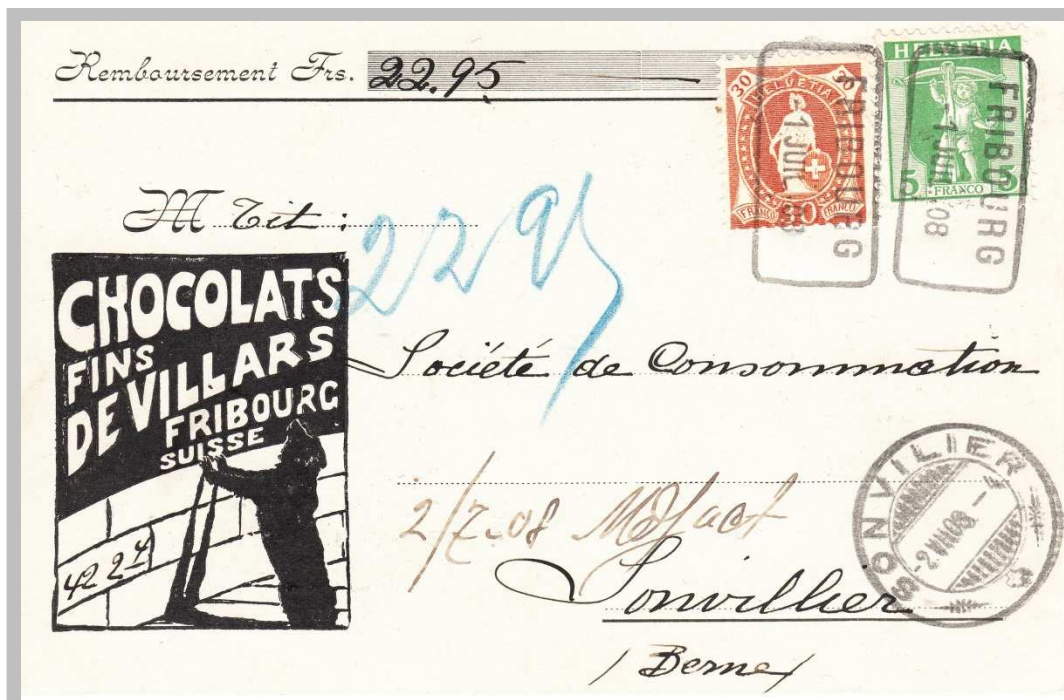 Remboursement Frs. 22.95
30 HELVETIA 30
FRANCO 30 FRANCO
HELVETIA
5 FRANCO 5
FRIBOURG
-1 JUIL 08
FRIBOURG
-1 JUIL 08
M Tit:
22 95
CHOCOLATS
FINS
DE VILLARS
FRIBOURG
SUISSE
42 27
Société de Consommation
2/7-08
Sonvillier
/ Berne /
SONVILIER
-2 VII 08 - 4